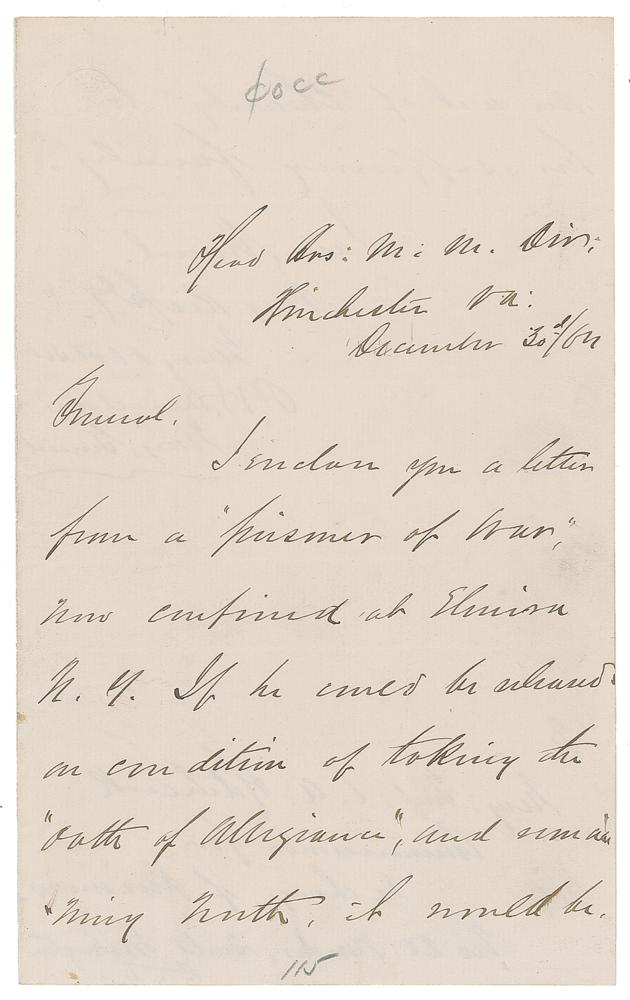 Head Qrs: M: M. Div:
Winchester Va:
December 30th/64
General.
I enclose you a letter
from a "prisoner of War,"
now confined at Elmira
N. Y. If he could be released
on condition of taking the
"oath of Allegiance", and remain
"ning North, it would be.
115